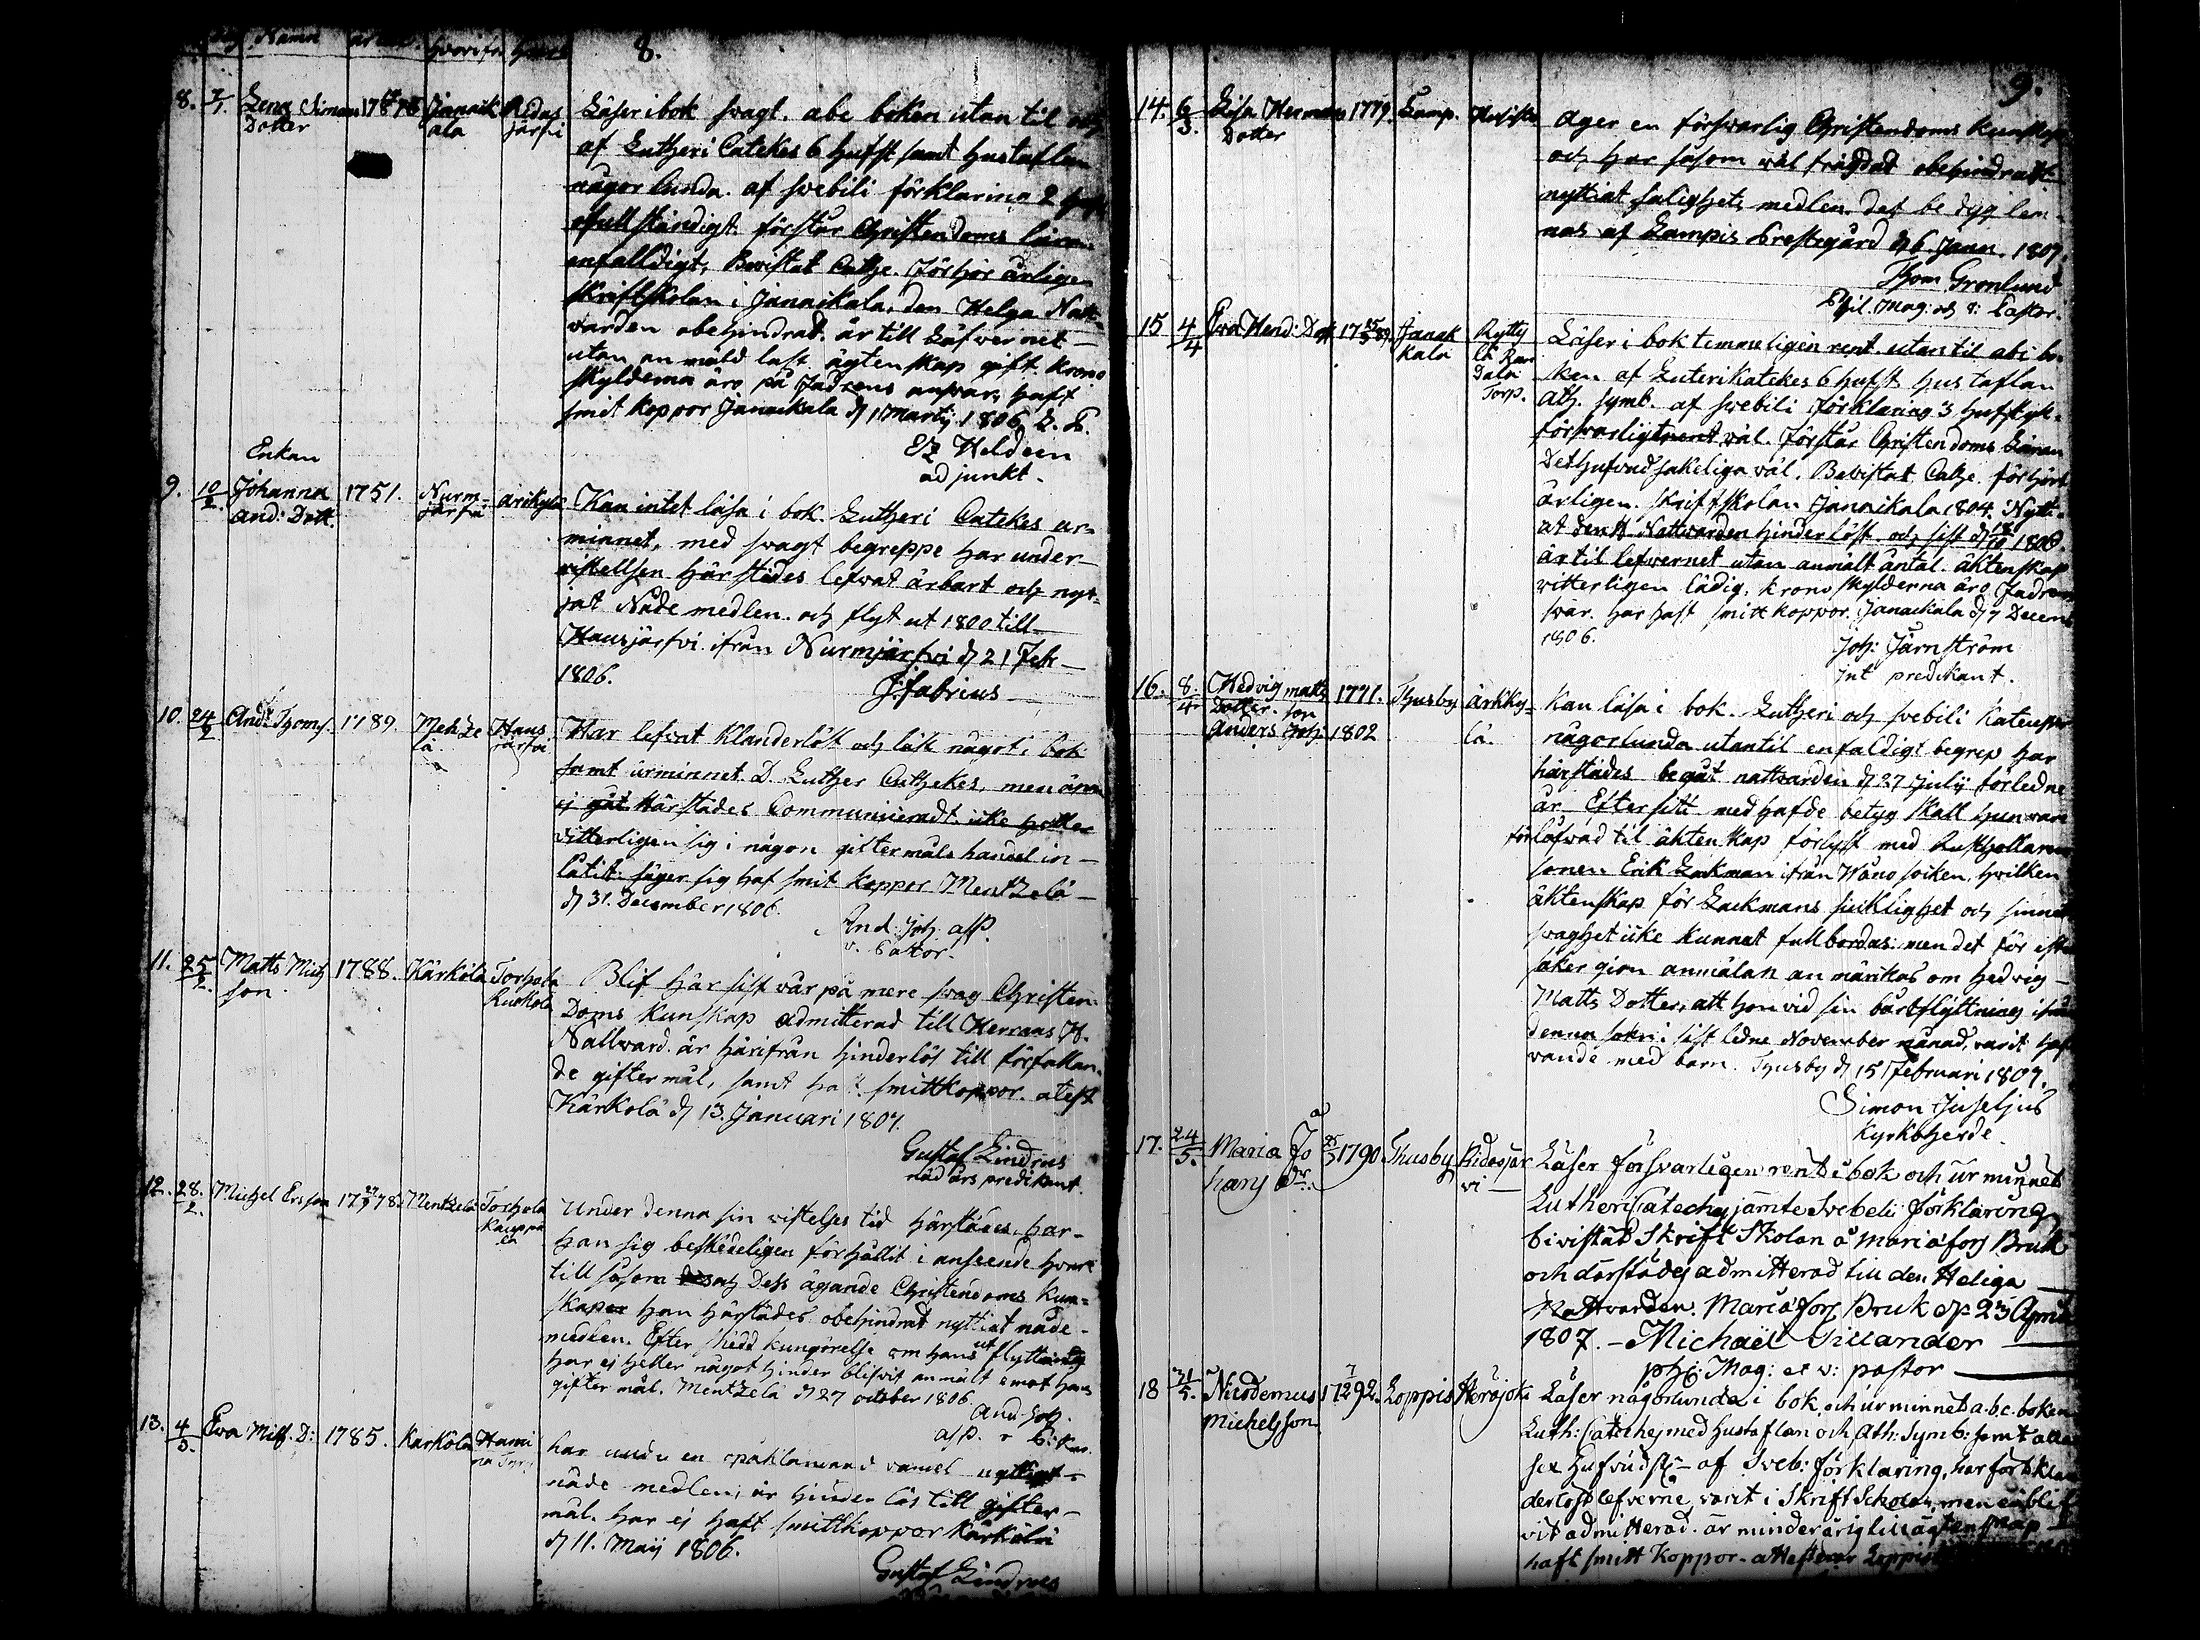 8.
Namn
8. 7/1 Lena Simons 17 78 Janaik Ridas Läser i bok swagt. abc boken utan til och
Dotter ala järfvi af Lutheri Catekes 6 hufst samt hustaflan
någor lunda. af swebili förklaring 2
ofullständigt. förstår Christendoms läran
enfalldigt, Bevistat Cathe. förhör årligen
skriftskolan i Janaikala, den Helga Natt-
varden obehindrat. är till Läfwernet
utan an mäld last ägtenskap gift krono
skylderna äro på fadrens answar, haft
smit koppor Janaikala d 1 Martij 1806
Ez Heldeen
adjunkt.
Enkan
9. 10/2 Johanna 1751. Nurm- arikylä Kan intet läsa i bok. Lutheri Catekes ur-
And: Dott. järfvi minnet, med swagt begreppe har under-
vistellsen härstädes lefvat ärbart och nyt-
jat Nåde medlen. och flyt ut 1800 till
Hausjärfvi ifrån Nurmjärfvi d 21 Feb
1806.
J: Fabrius
10. 24/2 And: Thoms. 1789. Mentze Haus Har lefvat klanderlöst och läse något i bok
lä järfvi samt urminnet D. Luther Cathekes, men ännu
ej gåt härstädes Communicerat. icke heller
vitterligen sig i någon giftermåls handel in-
låtit: säger sig haf smit koppor Mentzelä
d 31. December 1806.
And: Joh. asp.
v. Pastor.
11. 25/2 Matts Mich 1788. Kärkölä Torhola Blif här sist vår på mere swag Christen-
son. Kuskola Doms kunskap admitterad till Herrans H.
Nattward. är härifrån hinderlös till förfallan-
de giftermål, samt haft smittkoppor. atest
Kärkolä d 13. Januari 1807.
Gustaf Lindroos
nådårs predikant.
12. 28./2. Michel Ersson 17 78. Mentzelä Torhola Under denna sin vistelses tid härstädes har
Kauppa han sig beskedeligen förhållit i anseende hvar
lä till såsom och Dess ägande Christendoms kun-
skaper han härstädes obehindrat nyttiat nåde-
medlen. Efter skedd kungörelse om hans ut flyttning
har ej heller något hinder blifvit anmält emot hans
giftermål. Mentzelä d 27 october 1806.
And: Joh.
asp. v P:
13. 4/3. Ewa Mitt. D: 1785. Kärkölä har under en opåklannad vandel nyttjat
nåde medlen, är hinder lös till gifter-
mål. har ej haft smittkoppor Kärkölä
d 11. Maij 1806.
Gustaf Lindroos
9.
14. 6/3. Lisa Herman 1779. Lamp. Äger en förswarlig Christendoms kunskap
Dotter och har såsom väl frägdat obehindrat
nyttiat salighets medlen. Det be tyg lem-
nas af Lampis Prestegård d 6 Jann. 1807.
Thom Gronlund
Phil. Mag: och v: Pastor.
15 4/4 Ewa Hend: Dott 17 89. Janak Rytty Läser i bok temmeligen rent. utantil abc bo-
kala lä Rau ken af Luteri Katekes 6 hufst hustaflan
Dala Ath. symb. af swebili förklaring 3 hufstyk-
Torp. försvarligt rent väl. förstår Christendoms Läran
Det hufvudsakeliga väl. Bevistat Cathe. förhört
årligen. Skriftskolan Janaikala 1804. Nytti-
at den H Nattvarden hinder löst. och sist d 1806.
är til lefvernet utan anmält antal. äktenskap
vitterligen lädig. krono skylderna äro fadrens
svar. har haft smitt koppor. Janaikala d 7 Decemb
1806.
Joh: Järnström
Jnt predikant.
16. 8./4 Hedvig matts 1771. Thusby Ärkky- Kan läsa i bok. Lutheri och svebili Kateches
Dotter. son lä. någorlunda utantil enfaldigt begrep har
Anders Joh: 1802 härstädes begåt nattvarden d 27 Julij förledne
år. Eftersitt medhafde betyg skall hun vara
förlofwad til äktenskap förlyst med Rusthollare
sonen Erik Lackman ifrån Wåno soiken. hvilken
äktenskap för Lackmans sicklighet och sinnes
svaghet icke kunnat fullbordas: men det för efter
söker gion anmälan an märikas om Hedvig
Matts Dotter, att hon vid sin bårtflyttning ifrån
denna sokn i sist ledne November månad, varit haf
vande med barn. Thusby d 15 Februari 1807.
Simon Juseljus
Kyrkoherde.
17. 24/5. Maria Jo 25/3 1790 Thusby Ridasjär Läser försvarligen rent i bok och ur minnet
hans dr. vi Lutheri Cateches jämte Svebeli förklaring
bivistad Skrift Skolan å Mariäfors Bruk
och därstädes admitterad till den Heliga
Nattvarden. Mariäfors Bruk d 23 April
1807. Michaël Tillander
phi: Mag: et v: pastor
18 31/5. Nicodemus 17 7/12 92. Loppis Herajoki Läser någorlunda i bok, och ur minnet a.b.c. boken
Michelsson Luth: Cateches med hustaflan och Ath: Symb: samt alla
sex Hufvudst af Sveb: förklaring, har fört klan
derlöst lefverne, varit i Skrift Scholan, men ei blef
vit admitterad. är minderårig till ägtenskap
haft smitt koppor. attesterar Loppis